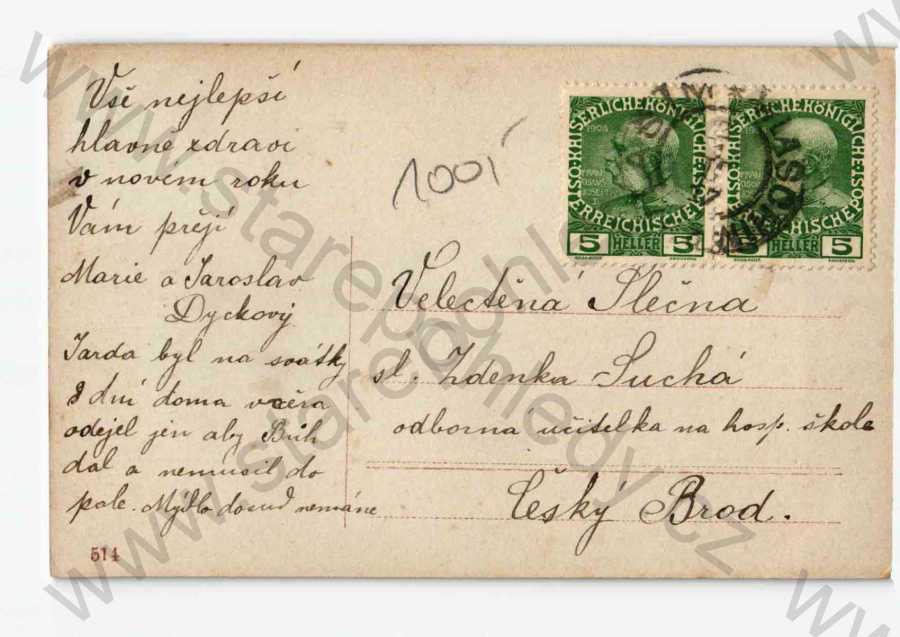 Vše nejlepší
hlavně zdraví
v novém roku
Vám přejí
Marie a Jaroslav
Dyckový
Jarda byl na svátky
8 dní doma včera
odejel jen aby Bůh
dal a nemusil do
pole. Mýdlo dosud nemáne
514
100,-
KAISERLICHE KÖNIGLICHE
ÖSTERREICHISCHE POST
1908
5 HELLER 5
KAISERLICHE KÖNIGLICHE
ÖSTERREICHISCHE POST
5 HELLER 5
Velectěná Slečna
sl. Zdenka Suchá
odborná učitelka na hosp. škole
Český Brod.
www.starepohledy.cz
www.starepohledy.cz